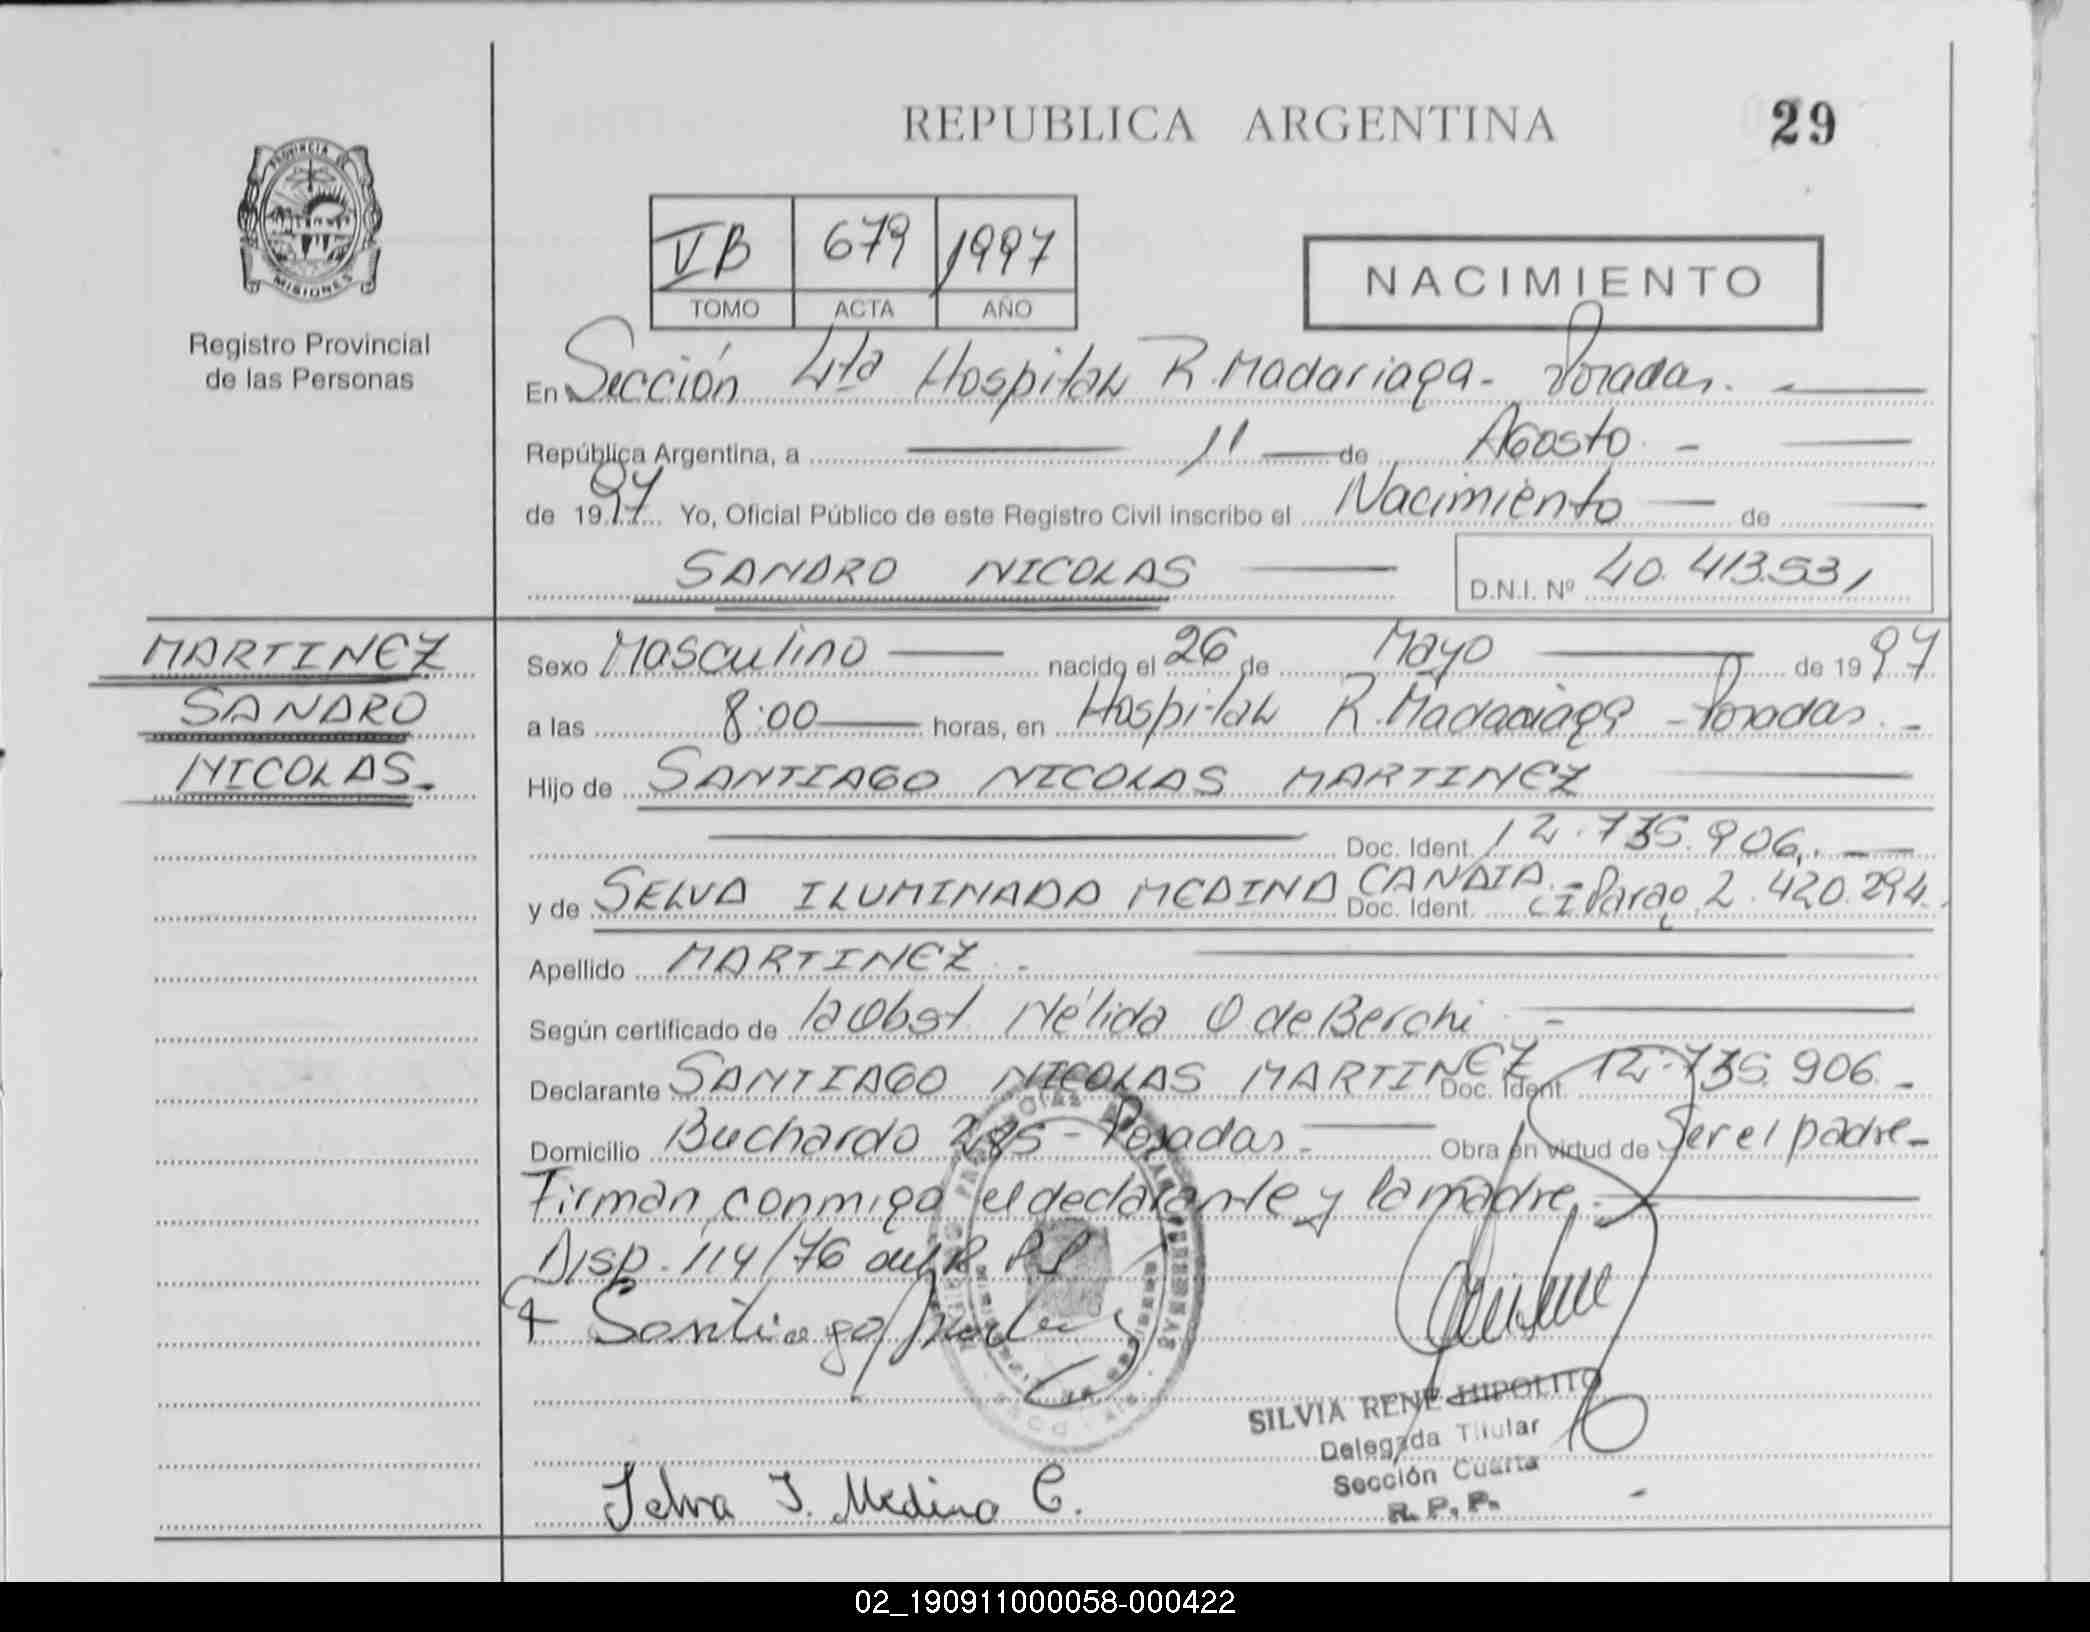 REPUBLICA ARGENTINA
29
PROVINCIA DE
MISIONES
Registro Provincial
de las Personas
VB 679 1997
TOMO ACTA AÑO
NACIMIENTO
En Sección 4ta Hospital R. Madariaga - Posadas. -
República Argentina, a 11 de Agosto -
de 1997 Yo, Oficial Público de este Registro Civil inscribo el Nacimiento de
SANDRO NICOLAS D.N.I. Nº 40.413.531
MARTINEZ
SANDRO
NICOLAS -
Sexo Masculino nacido el 26 de Mayo de 1997
a las 8:00 horas, en Hospital R. Madariaga - Posadas. -
Hijo de SANTIAGO NICOLAS MARTINEZ
Doc. Ident. 12.735.906.
y de SELVA ILUMINADA MEDINA CANDIA - Doc. Ident. CI Parag 2.420.294.
Apellido MARTINEZ. -
Según certificado de la Obst. Nélida O de Berchi -
Declarante SANTIAGO NICOLAS MARTINEZ Doc. Ident. 12.735.906 -
Domicilio Buchardo - Posadas - Obra en virtud de Ser el padre -
Firman conmigo el declarante y la madre.
Disp. 114/76 del R.P.P
Santiago
SILVIA RENE HIPOLITO
Delegada Titular
Sección Cuarta
R. P. P.
Selva I. Medina C.
02_190911000058-000422